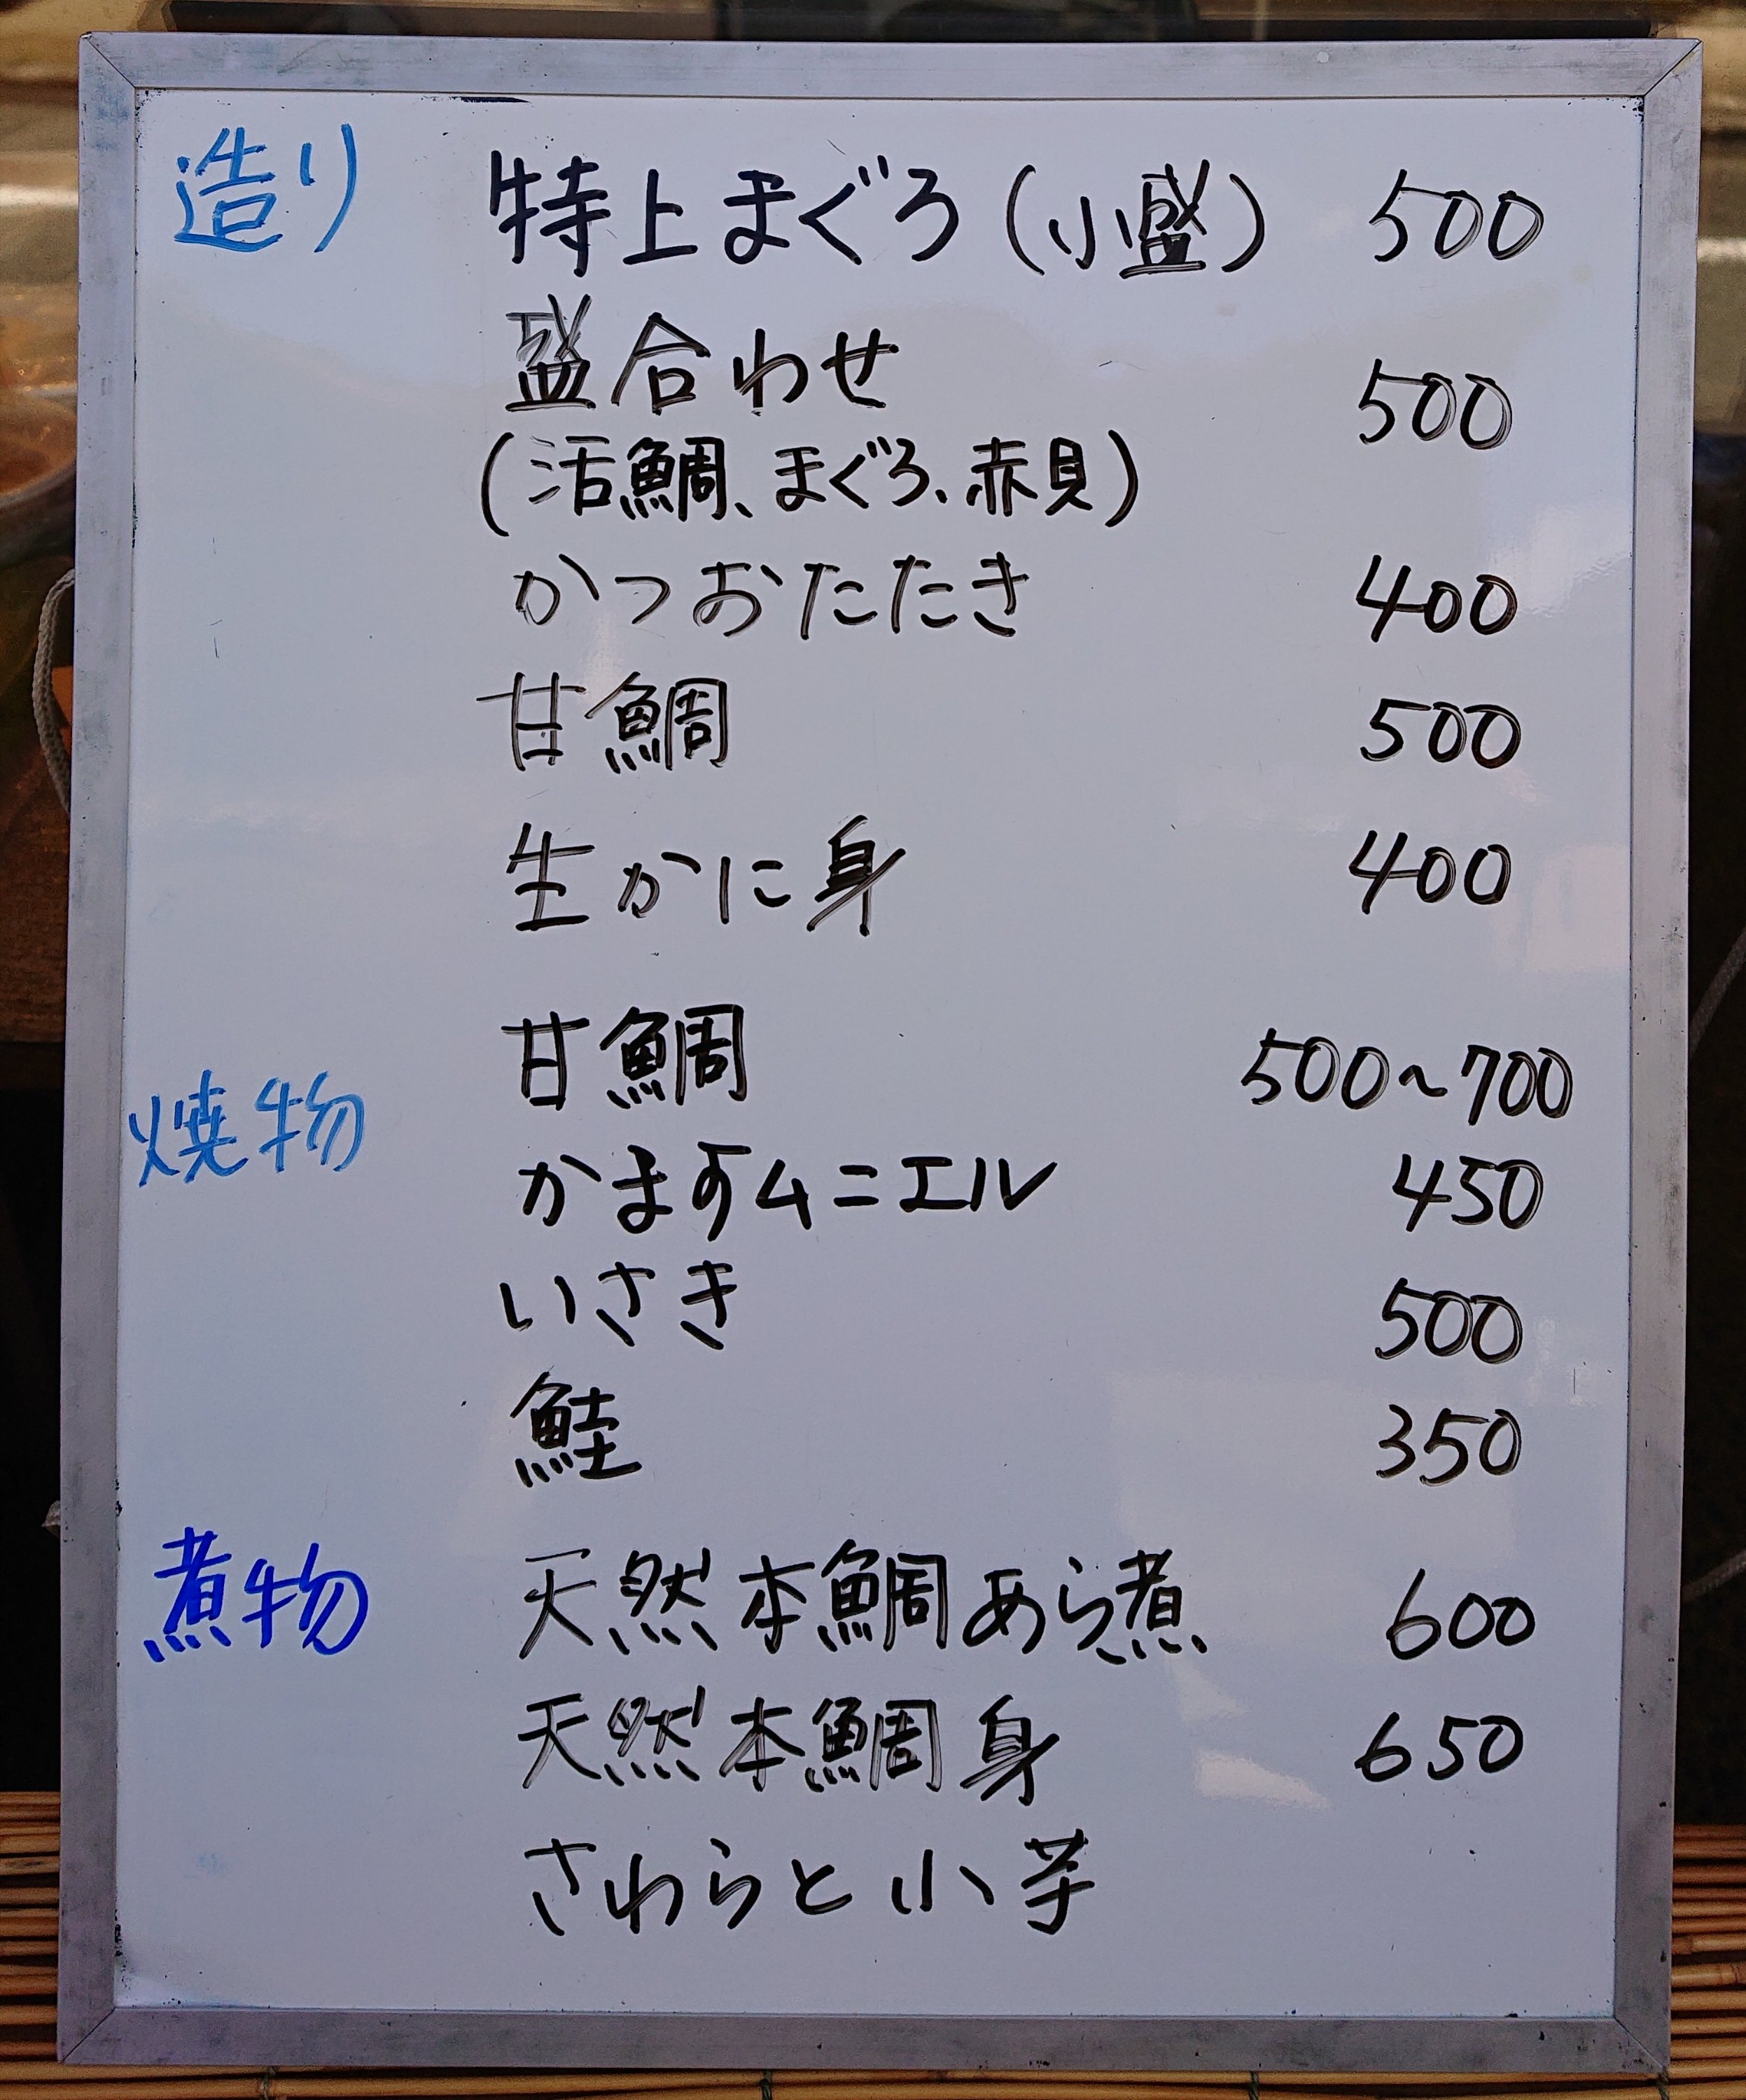 造り 特上まぐろ(小盛) 500
盛合わせ 500
(活鯛、まぐろ、赤貝)
かつおたたき 400
甘鯛 500
生かに身 400
甘鯛 500~700
焼物
かますムニエル 450
いさき 500
鮭 350
煮物 天然本鯛あら煮 600
天然本鯛身 650
さわらと小芋